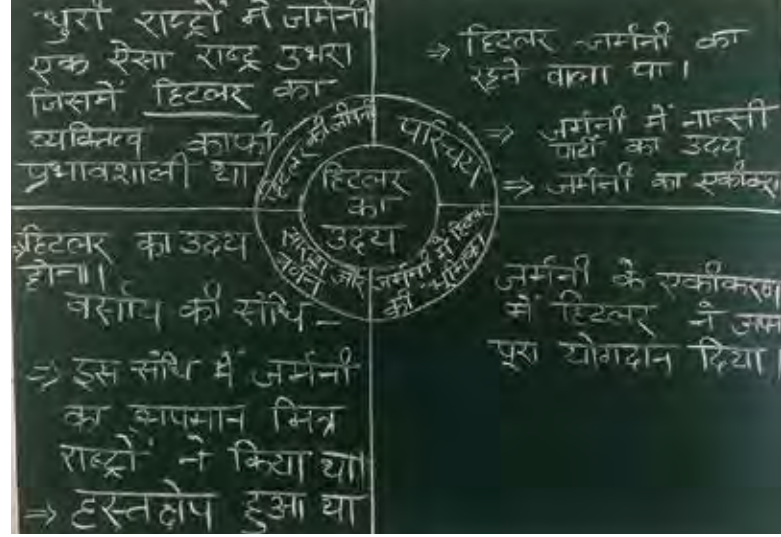 धुरी राष्ट्रों में जर्मनी
एक ऐसा राष्ट्र उभरा
जिसमें हिटलर का
व्यक्तित्व काफी
प्रभावशाली था
⇒ हिटलर जर्मनी का
रहने वाला था।
⇒ जर्मनी में नात्सी
पार्टी का उदय
⇒ जर्मनी का एकीकरण
हिटलर की जीवनी
परिचय
हिटलर
का
उदय
और
वर्णन
जर्मनी में हिटलर
की भूमिका
⇒ हिटलर का उदय
होना।
वर्साय की संधि –
⇒ इस संधि में जर्मनी
का अपमान मित्र
राष्ट्रों ने किया था।
⇒ हस्तक्षेप हुआ था
जर्मनी के एकीकरण
में हिटलर ने
पूरा योगदान दिया।